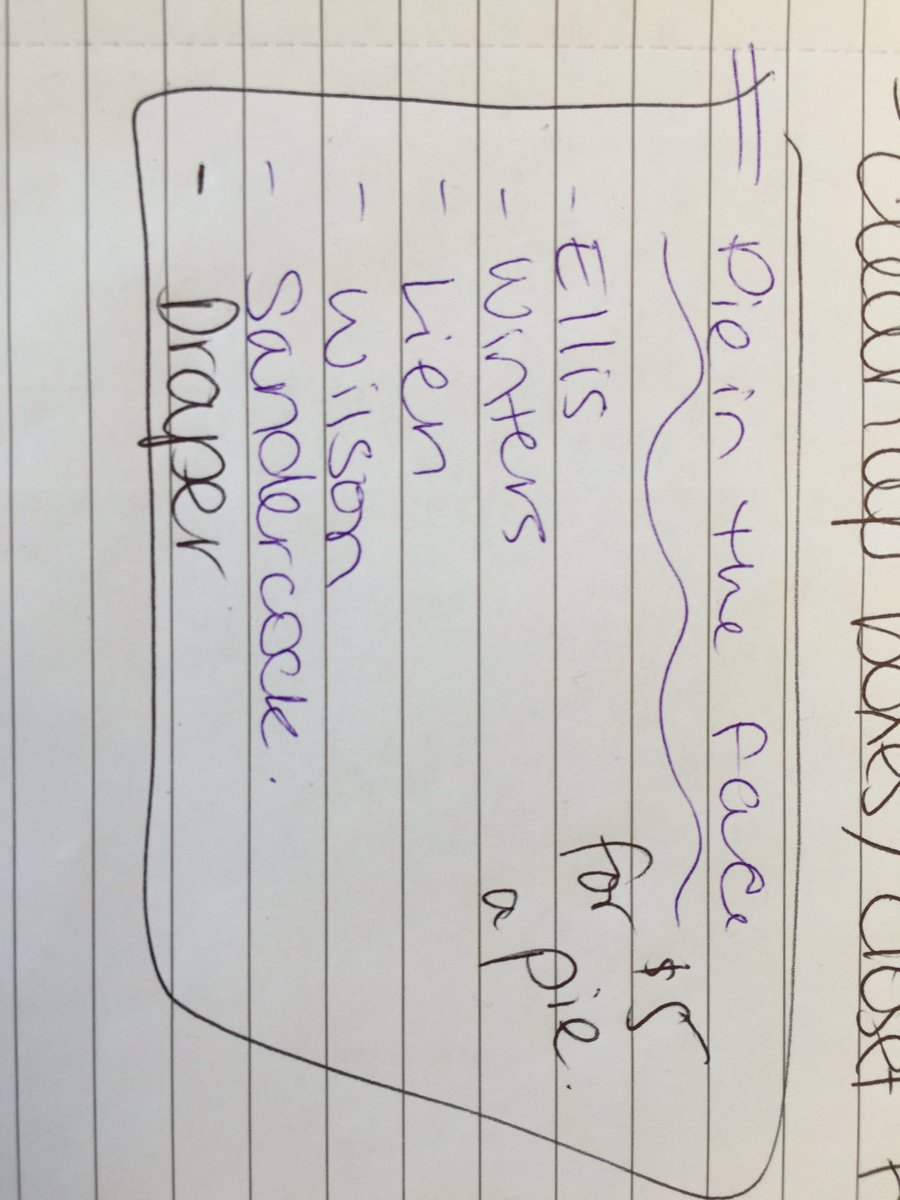 Cleanup boxes, closet
Pie in the face
- Ellis
- Winters
- Lien
- Wilson
- Sandercock.
- Draper
for $5
a pie.